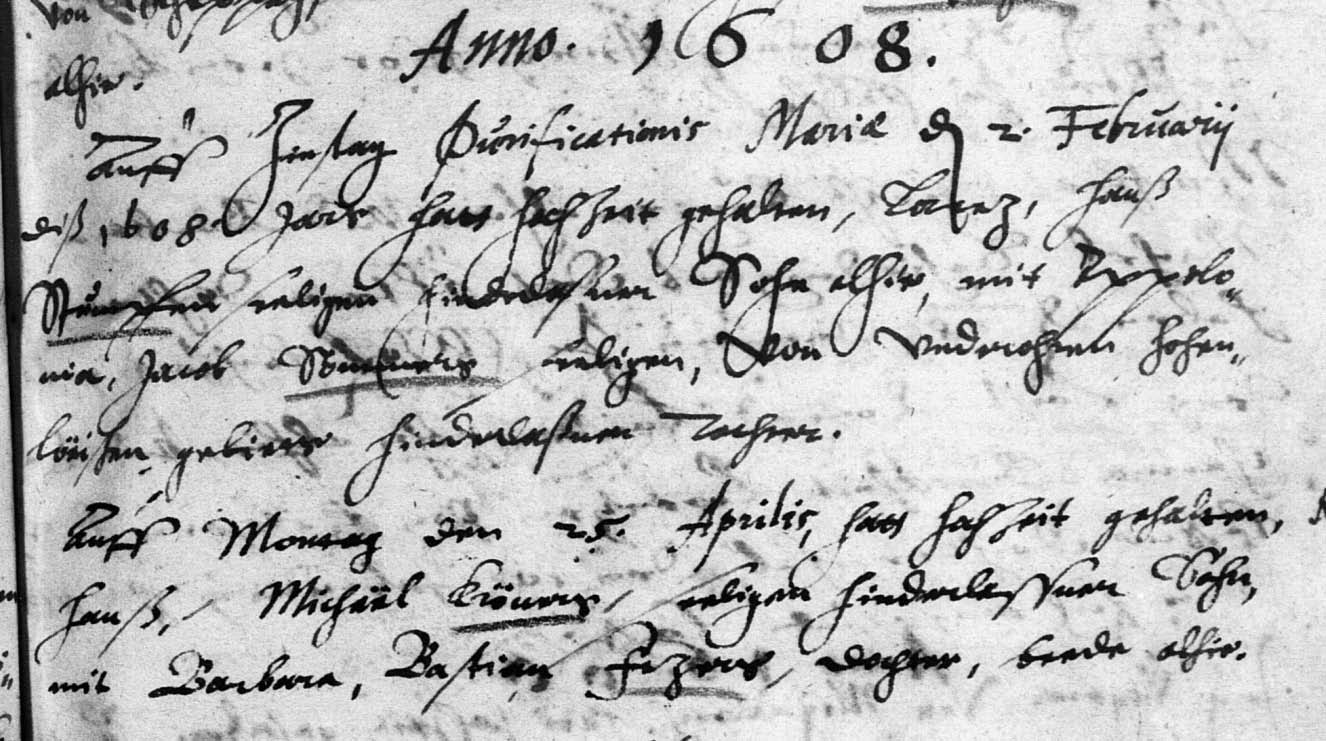 von
alhie.
Anno. 1608.
Auff Zinstag Purificationis Mariæ dē 2. Februarij
diß 1608. Jars hatt hochzeit gehalten, Lorenz, Hanß
Stumpfen seligen hinderlaßner Sohn alhie, mit Appolo„
nia, Jacob seligen, von hohen„
hinderlaßnen Tochter.
Auff Montag den 25. Aprilis, hatt hochzeit gehalten,
Hanß, Michäel seligen hinderlassner Sohn,
mit Barbara, Bastian dochter, beede alhie.